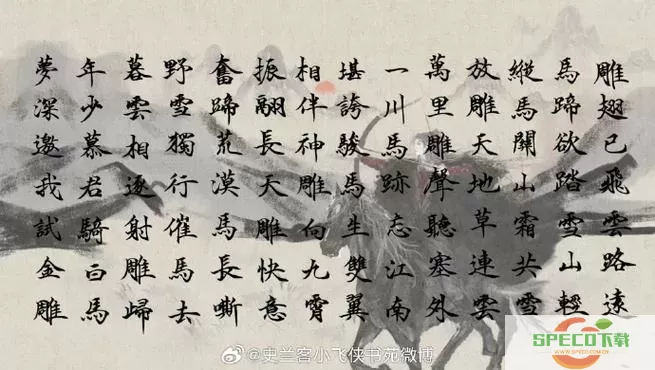 雕翅已飛雲路遠
馬蹄欲踏雪山輕
縱馬關山霜共雪
放雕天地草連雲
萬里雕聲聽塞外
一川馬跡忘江南
堪誇駿馬生雙翼
相伴神雕向九霄
振翮長天雕快意
奮蹄荒漠馬長嘶
野雪獨行催馬去
暮雲相逐射雕歸
年少慕君騎白馬
夢深邀我試金雕
@史兰客小飞侠书苑微博
SPECO下载